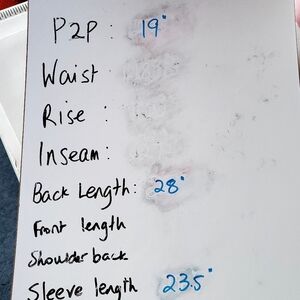 P2P : 19"
Waist :
Rise :
Inseam:
Back Length: 28"
Front length
Shoulder back
Sleeve length 23.5"